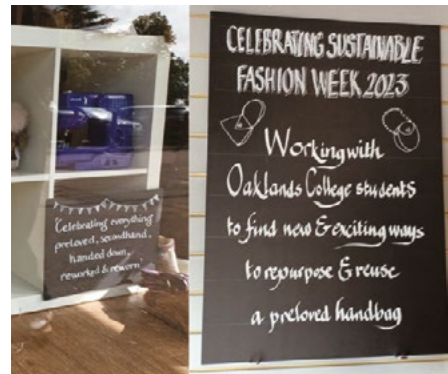 Celebrating everything
preloved, secondhand,
handed down,
reworked & reworn
CELEBRATING SUSTAINABLE
FASHION WEEK 2023
Working with
Oaklands College students
to find new & exciting ways
to repurpose & reuse
a preloved handbag